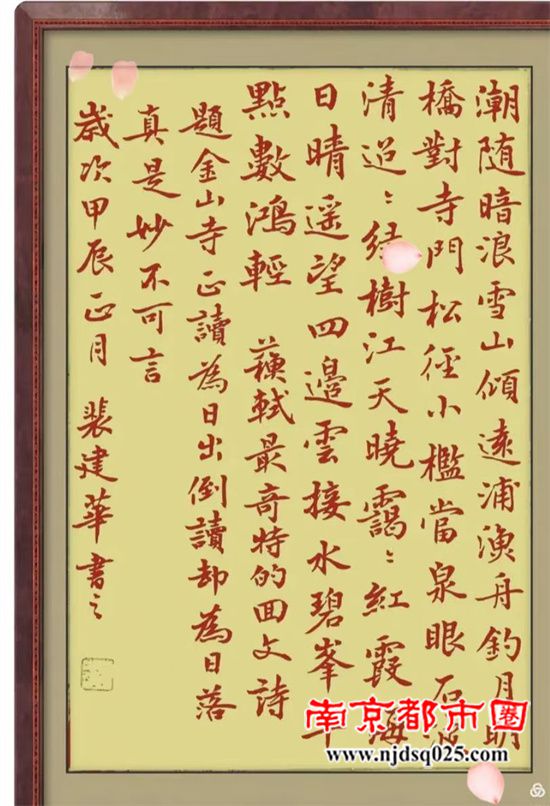 潮随暗浪雪山傾遠浦漁舟釣月明
橋對寺門松徑小檻當泉眼石
清迢〻緑樹江天曉靄〻紅霞海
日晴遥望四邊雲接水碧峯千
點數鴻輕 蘓軾最奇特的回文詩
題金山寺正讀為日出倒讀却為日落
真是妙不可言
歲次甲辰正月 裴建華書之
南京都市圈
www.njdsq025.com